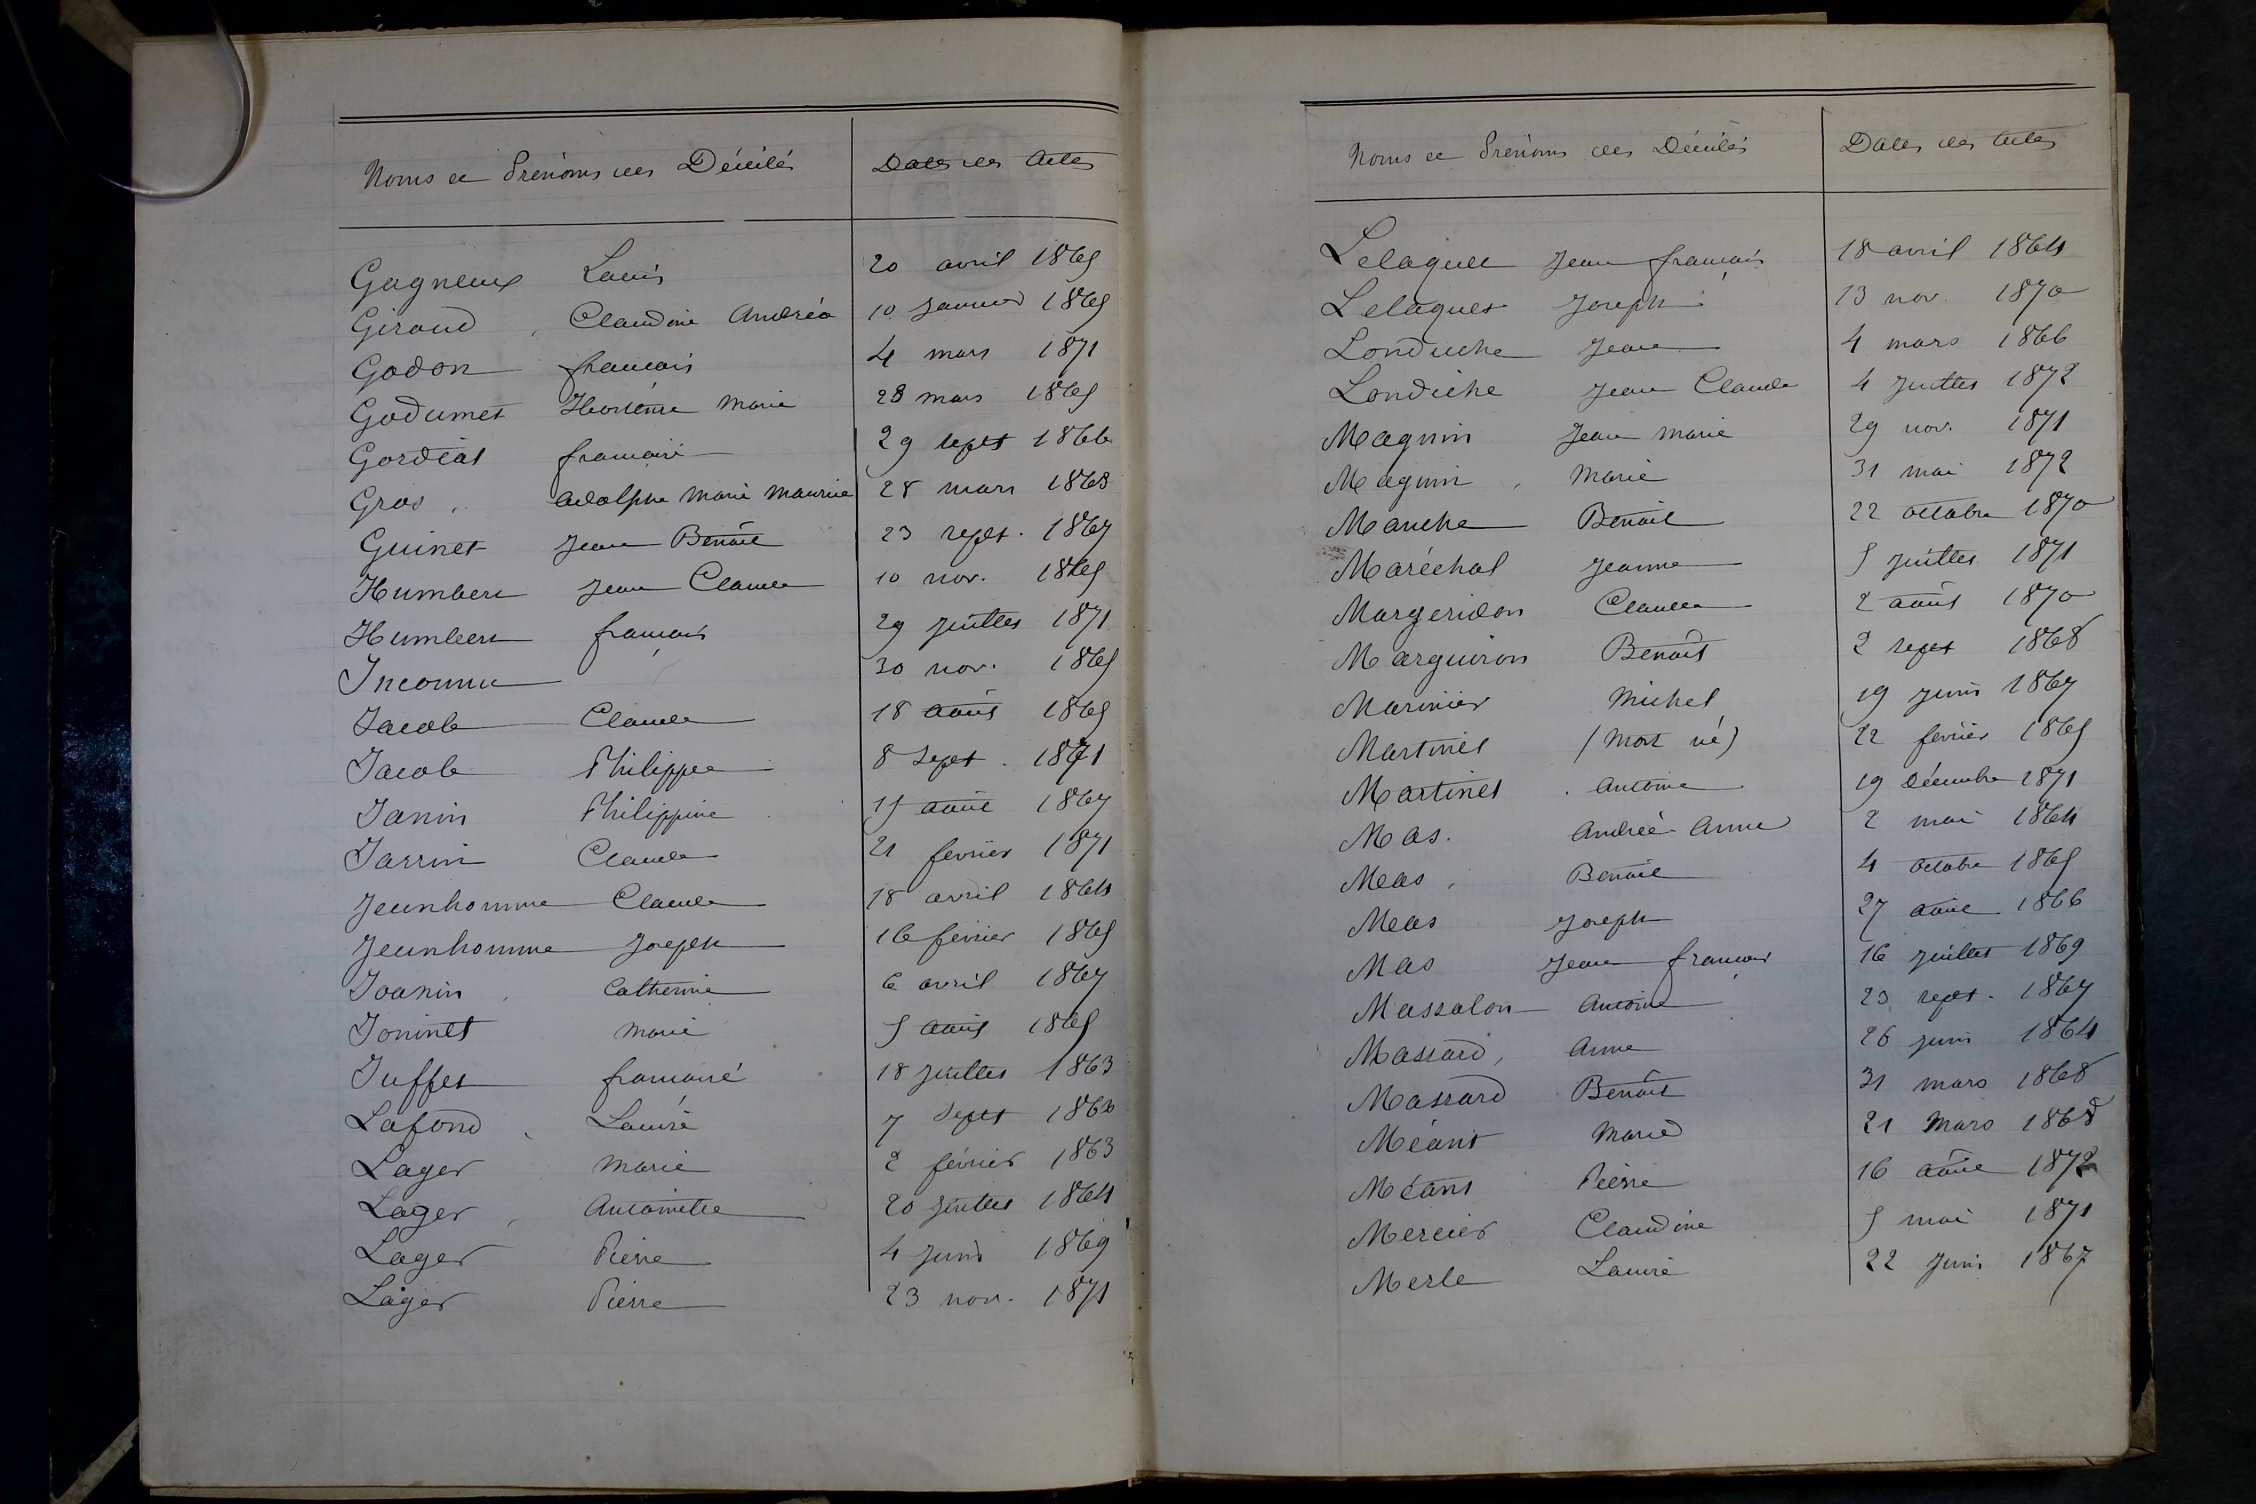 Noms et Prénoms des Décédés Dates des Actes
Gagneux Louis 20 avril 1865
Giraud, Claudine Andréa 10 Janvier 1865
Godon francois 4 mars 1871
Godumet Hortense Marie 28 mars 1865
Gordiat francoise 29 sept 1866
Gros, Adolphe Marie Maurice 28 mars 1863
Guinet Jean Benoit 23 sept. 1867
Humbert Jean Claude 10 nov. 1865
Humbert francois 29 juillet 1871
Inconnu 30 nov. 1865
Jacob Claude 18 août 1865
Jacob Philippe 8 Sept. 1871
Janin Philippine 15 août 1867
Jarrin Claude 21 fevrier 1871
Jeunhomme Claude 18 avril 1864
Jeunhomme Joseph 16 fevrier 1865
Joanin, Catherine 6 avril 1867
Joninet Marie 5 août 1865
Juffet francoise 18 juillet 1863
Lafond, Louise 7 Sept
Lager Marie 2 février 1863
Lager, Antoinette 20 juillet 1864
Lager Pierre 4 juin 1869
Lager Pierre 23 nov. 1871
Noms et Prénoms des Décédés Dates des Actes
Lelaquet Jean francois 18 avril 1864
Lelaquet Joseph 13 nov. 1870
Londuche Jean 4 mars 1866
Londiche Jean Claude 4 juillet 1872
Magnin Jean Marie 29 nov. 1871
Magnin, Marie 31 mai 1872
Manche Benoit 22 octobre 1870
Maréchal Jeanne 5 juillet 1871
Margeridon Claude 2 août 1870
Marguiron Benoit 2 sept 1868
Marinier Michel 19 juin 1867
Martinet (Mort né) 22 février 1865
Martinet Antoine 19 Décembre 1871
Mas. Andrée Anne 2 mai 1864
Mas, Benoit 4 octobre 1865
Mas Joseph 27 août 1866
Mas Jean francois 16 juillet 1869
Massalon Antoine 23 sept. 1867
Massard, Anne 26 juin 1864
Massard Benoit 31 mars 1868
Méant Marie 21 Mars 1868
Méant Pierre 16 août 1872
Mercier Claudine 5 mai 1871
Merle Louise 22 Juin 1867